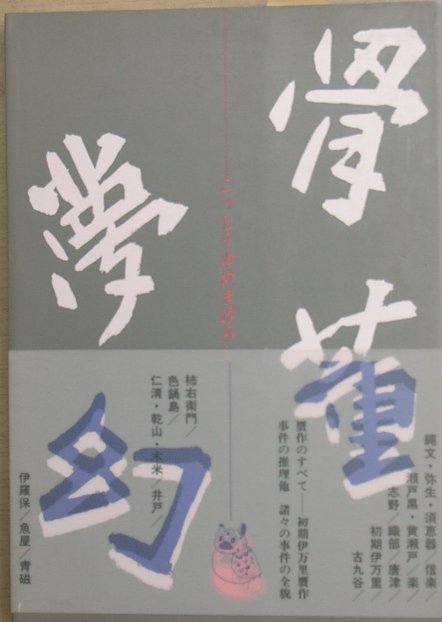 骨董
夢幻
縄文・弥生・須恵器／信楽／
瀬戸黒・黄瀬戸／楽／
志野／織部／唐津／
初期伊万里
古九谷／
贋作のすべて――初期伊万里贋作
事件の推理他　諸々の事件の全貌
柿右衛門／
色鍋島／
仁清・乾山・木米／井戸／
伊羅保／魚屋／青磁